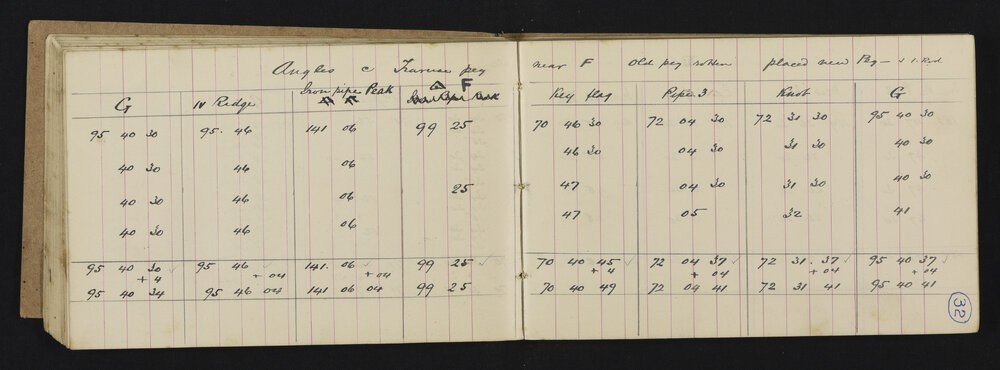 Angles @ Traverse peg near F Old peg rotten placed new Peg - & I. Rod
G IV Ridge Iron pipe Peak △ F Key flag Pipe 3 Knot G
95 40 30 95. 46 141 06 99 25 70 46 30 72 04 30 72 31 30 95 40 30
40 30 46 06 46 30 04 30 31 30 40 30
40 30 46 06 25 47 04 30 31 30 40 30
40 30 46 06 47 05 32 41
95 40 30 ✓ 95 46 ✓ 141. 06 ✓ 99 25 ✓ 70 40 45 ✓ 72 04 37 ✓ 72 31. 37 ✓ 95 40 37 ✓
+ 4 + 04 + 04 + 4 + 04 + 04 + 04
95 40 34 95 46 04 141 06 04 99 25 70 40 49 72 04 41 72 31 41 95 40 41
32